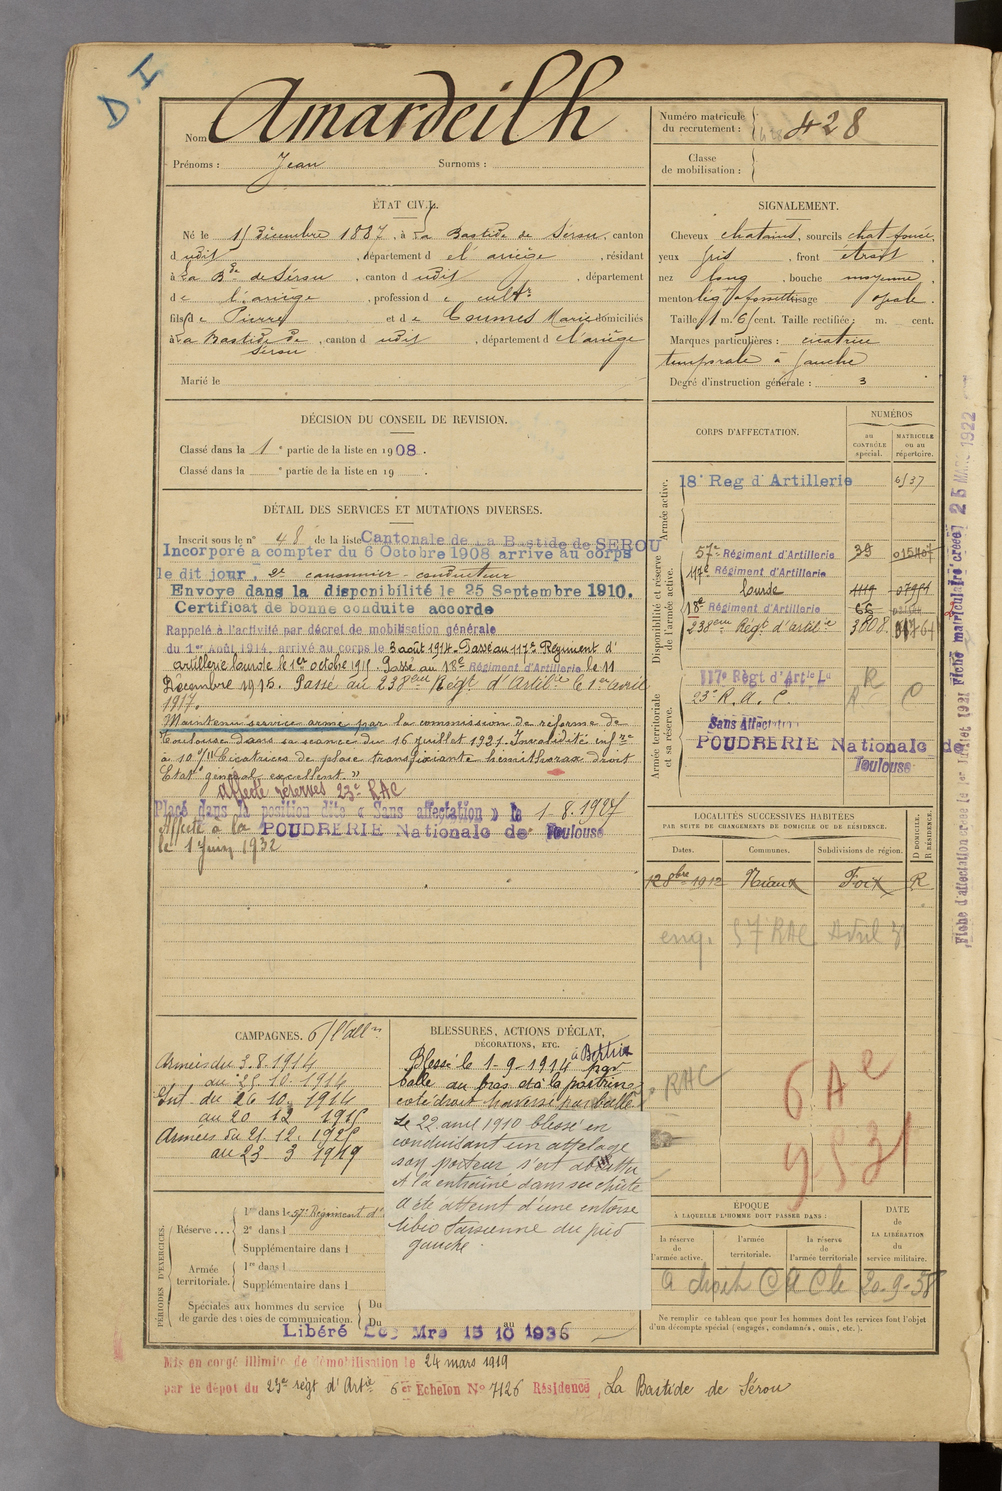 D.I
Nom Amardeilh
Prénoms : Jean Surnoms :
Numéro matricule
du recrutement : 428
Classe
de mobilisation :
ÉTAT CIVIL.
Né le 15 Décembre 1887, à La Bastide de Sérou, canton
dudit, département de l'ariège, résidant
à La Bde de Sérou, canton dudit, département
de l'ariège, profession de cultr
fils de Pierre et de Coumes Marie domiciliés
à La Bastide de Sérou, canton dudit, département de l'ariège
Marié le
SIGNALEMENT.
Cheveux chatains, sourcils chat foncé,
yeux gris, front étroit,
nez long, bouche moyenne,
menton lég à fossette visage ovale.
Taille 1 m. 65 cent. Taille rectifiée : m. cent.
Marques particulières : cicatrice
temporale à gauche
Degré d'instruction générale : 3
DÉCISION DU CONSEIL DE REVISION.
Classé dans la 1e partie de la liste en 1908.
Classé dans la e partie de la liste en 19
DÉTAIL DES SERVICES ET MUTATIONS DIVERSES.
Inscrit sous le n° 48 de la liste Cantonale de La Bastide de SEROU
Incorporé a compter du 6 Octobre 1908 arrivé au corps
le dit jour, 2e canonnier-conducteur
Envoyé dans la disponibilité le 25 Septembre 1910.
Certificat de bonne conduite accordé
Rappelé à l'activité par décret de mobilisation générale
du 1er Août 1914, arrivé au corps le 3 août 1914. Passé au 117e Régiment d'
artillerie lourde le 1er octobre 1915. Passé au 18e Régiment d'Artillerie le 11
Décembre 1915. Passé au 238eme Régt d'Artilie le 1er avril
1917.
Maintenu service armé par la commission de réforme de
Toulouse dans sa séance du 16 juillet 1921. Invalidité infre
à 10 % "Cicatrices de plaie transfixiante hémithorax droit
Etat général excellent"
Affecté réserves 23e RAC
Placé dans la position dite « Sans affectation » le 1-8.1927
Affecté à la POUDRERIE Nationale de Toulouse
le 1 Juin 1932
CORPS D'AFFECTATION.
NUMÉROS
au CONTRÔLE spécial.
MATRICULE ou au répertoire.
Armée active.
18e Reg d'Artillerie 6537
Disponibilité et réserve de l'armée active.
57e Régiment d'Artillerie 39
117e Régiment d'Artillerie
lourde 1119
18e Régiment d'Artillerie 66
238eme Régt d'artilie 3808
Armée territoriale et sa réserve.
117e Règt d'Artie Le R
23e R.A.C. R C
Sans Affectation
POUDRERIE Nationale de
Toulouse
Fiche d'affectation créée le 1er Juillet 1921 Fiche matriculaire créée 25 MARS 1922
LOCALITÉS SUCCESSIVES HABITÉES
PAR SUITE DE CHANGEMENTS DE DOMICILE OU DE RÉSIDENCE.
Dates. Communes. Subdivisions de région. D DOMICILE. R RÉSIDENCE.
12 8bre 1912 Foix R
57 RAC
RAC
6 Ae
9531
CAMPAGNES. c/ l'Allne
Armées du 3.8.1914
au 25.10.1914
Int. du 26 10. 1914
au 20 12 1915
Armées du 21.12.1915
au 23 3 1919
BLESSURES, ACTIONS D'ÉCLAT,
DÉCORATIONS, ETC.
Blessé le 1-9-1914 à Bertrix par
balle au bras et à la poitrine
coté droit traversé par balle
Le 22 avril 1910 blessé en
conduisant un attelage
son porteur s'est abattu
et l'a entraîné dans sa chute
a été atteint d'une entorse
tibio tarsienne du pied
gauche.
PÉRIODES D'EXERCICES.
Réserve 1re dans le 57e Régiment d'
2e dans l
Supplémentaire dans l
Armée territoriale. 1re dans l
Supplémentaire dans l
Spéciales aux hommes du service
de garde des voies de communication. Du
Du au
Libéré Mre 15 10 1936
ÉPOQUE
À LAQUELLE L'HOMME DOIT PASSER DANS :
la réserve de l'armée active.
l'armée territoriale.
la réserve de l'armée territoriale
DATE de LA LIBÉRATION du service militaire.
20-9-38
Ne remplir ce tableau que pour les hommes dont les services font l'objet
d'un décompte spécial (engagés, condamnés, omis, etc.).
Mis en congé illimité de démobilisation le 24 mars 1919
par le dépot du 23e régt d'Artie 6e Echelon No 7126 Résidence, La Bastide de Sérou